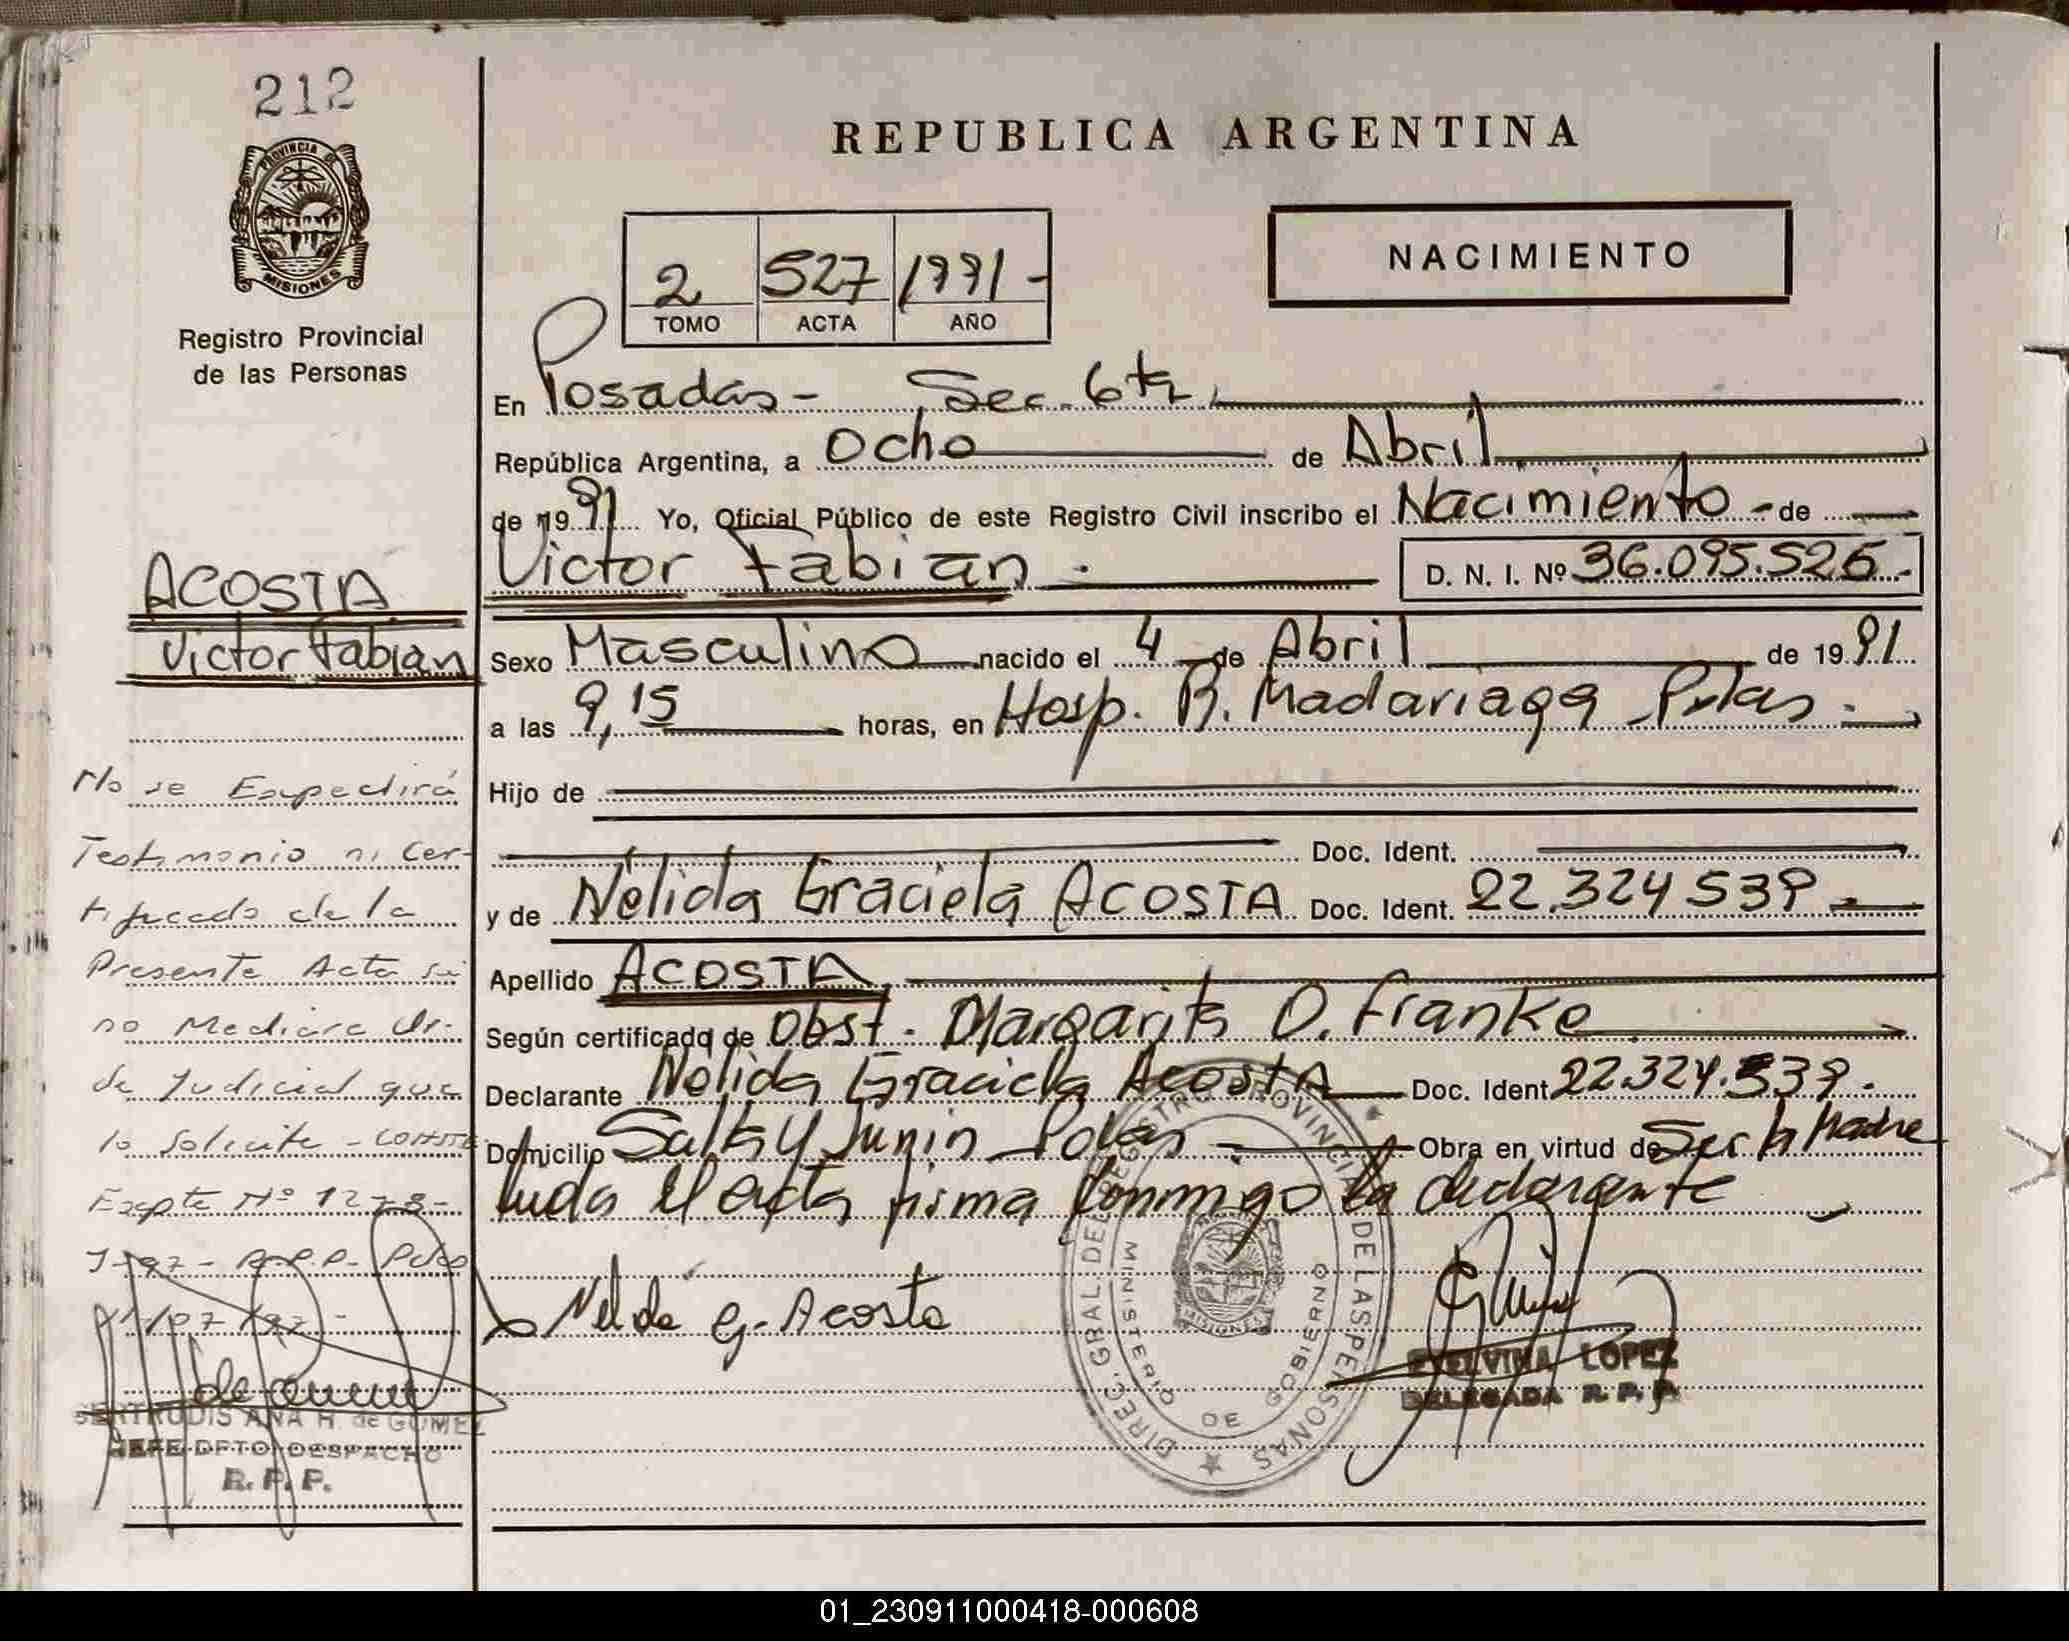 212
PROVINCIA DE
MISIONES
Registro Provincial
de las Personas
ACOSTA
Victor Fabian
No se Expedirá
Testimonio ni Cer-
tificado de la
Presente Acta si
no Mediare Or-
de Judicial que
lo Solicite - Conste
Expte Nº 1278-
R.P.P. Pdas
11/07/97 -
GERTRUDIS ANA H. de GOMEZ
JEFE DPTO DESPACHO
R. P. P.
REPUBLICA ARGENTINA
2 527 1991-
TOMO ACTA AÑO
NACIMIENTO
En Posadas - Sec. 6ta
República Argentina, a Ocho de Abril
de 1991 Yo, Oficial Público de este Registro Civil inscribo el Nacimiento - de
Victor Fabian - D. N. I. Nº 36.095.526.-
Sexo Masculino nacido el 4 de Abril de 1991
a las 9,15 horas, en Hosp. R. Madariaga Pdas.
Hijo de
Doc. Ident.
y de Nélida Graciela ACOSTA Doc. Ident. 22.324539
Apellido ACOSTA
Según certificado de Obst. Margarita O. Franke
Declarante Nélida Graciela Acosta Doc. Ident 22.324.539.
Domicilio Salta y Junin Pdas - Obra en virtud de Ser la Madre
Leida el acta firma conmigo la declarante
Nelida G. Acosta
DIREC. GRAL DEL REGISTRO PROVINCIAL DE LAS PERSONAS
MINISTERIO DE GOBIERNO
MISIONES
LOPEZ
DELEGADA R. P. P.
01_230911000418-000608